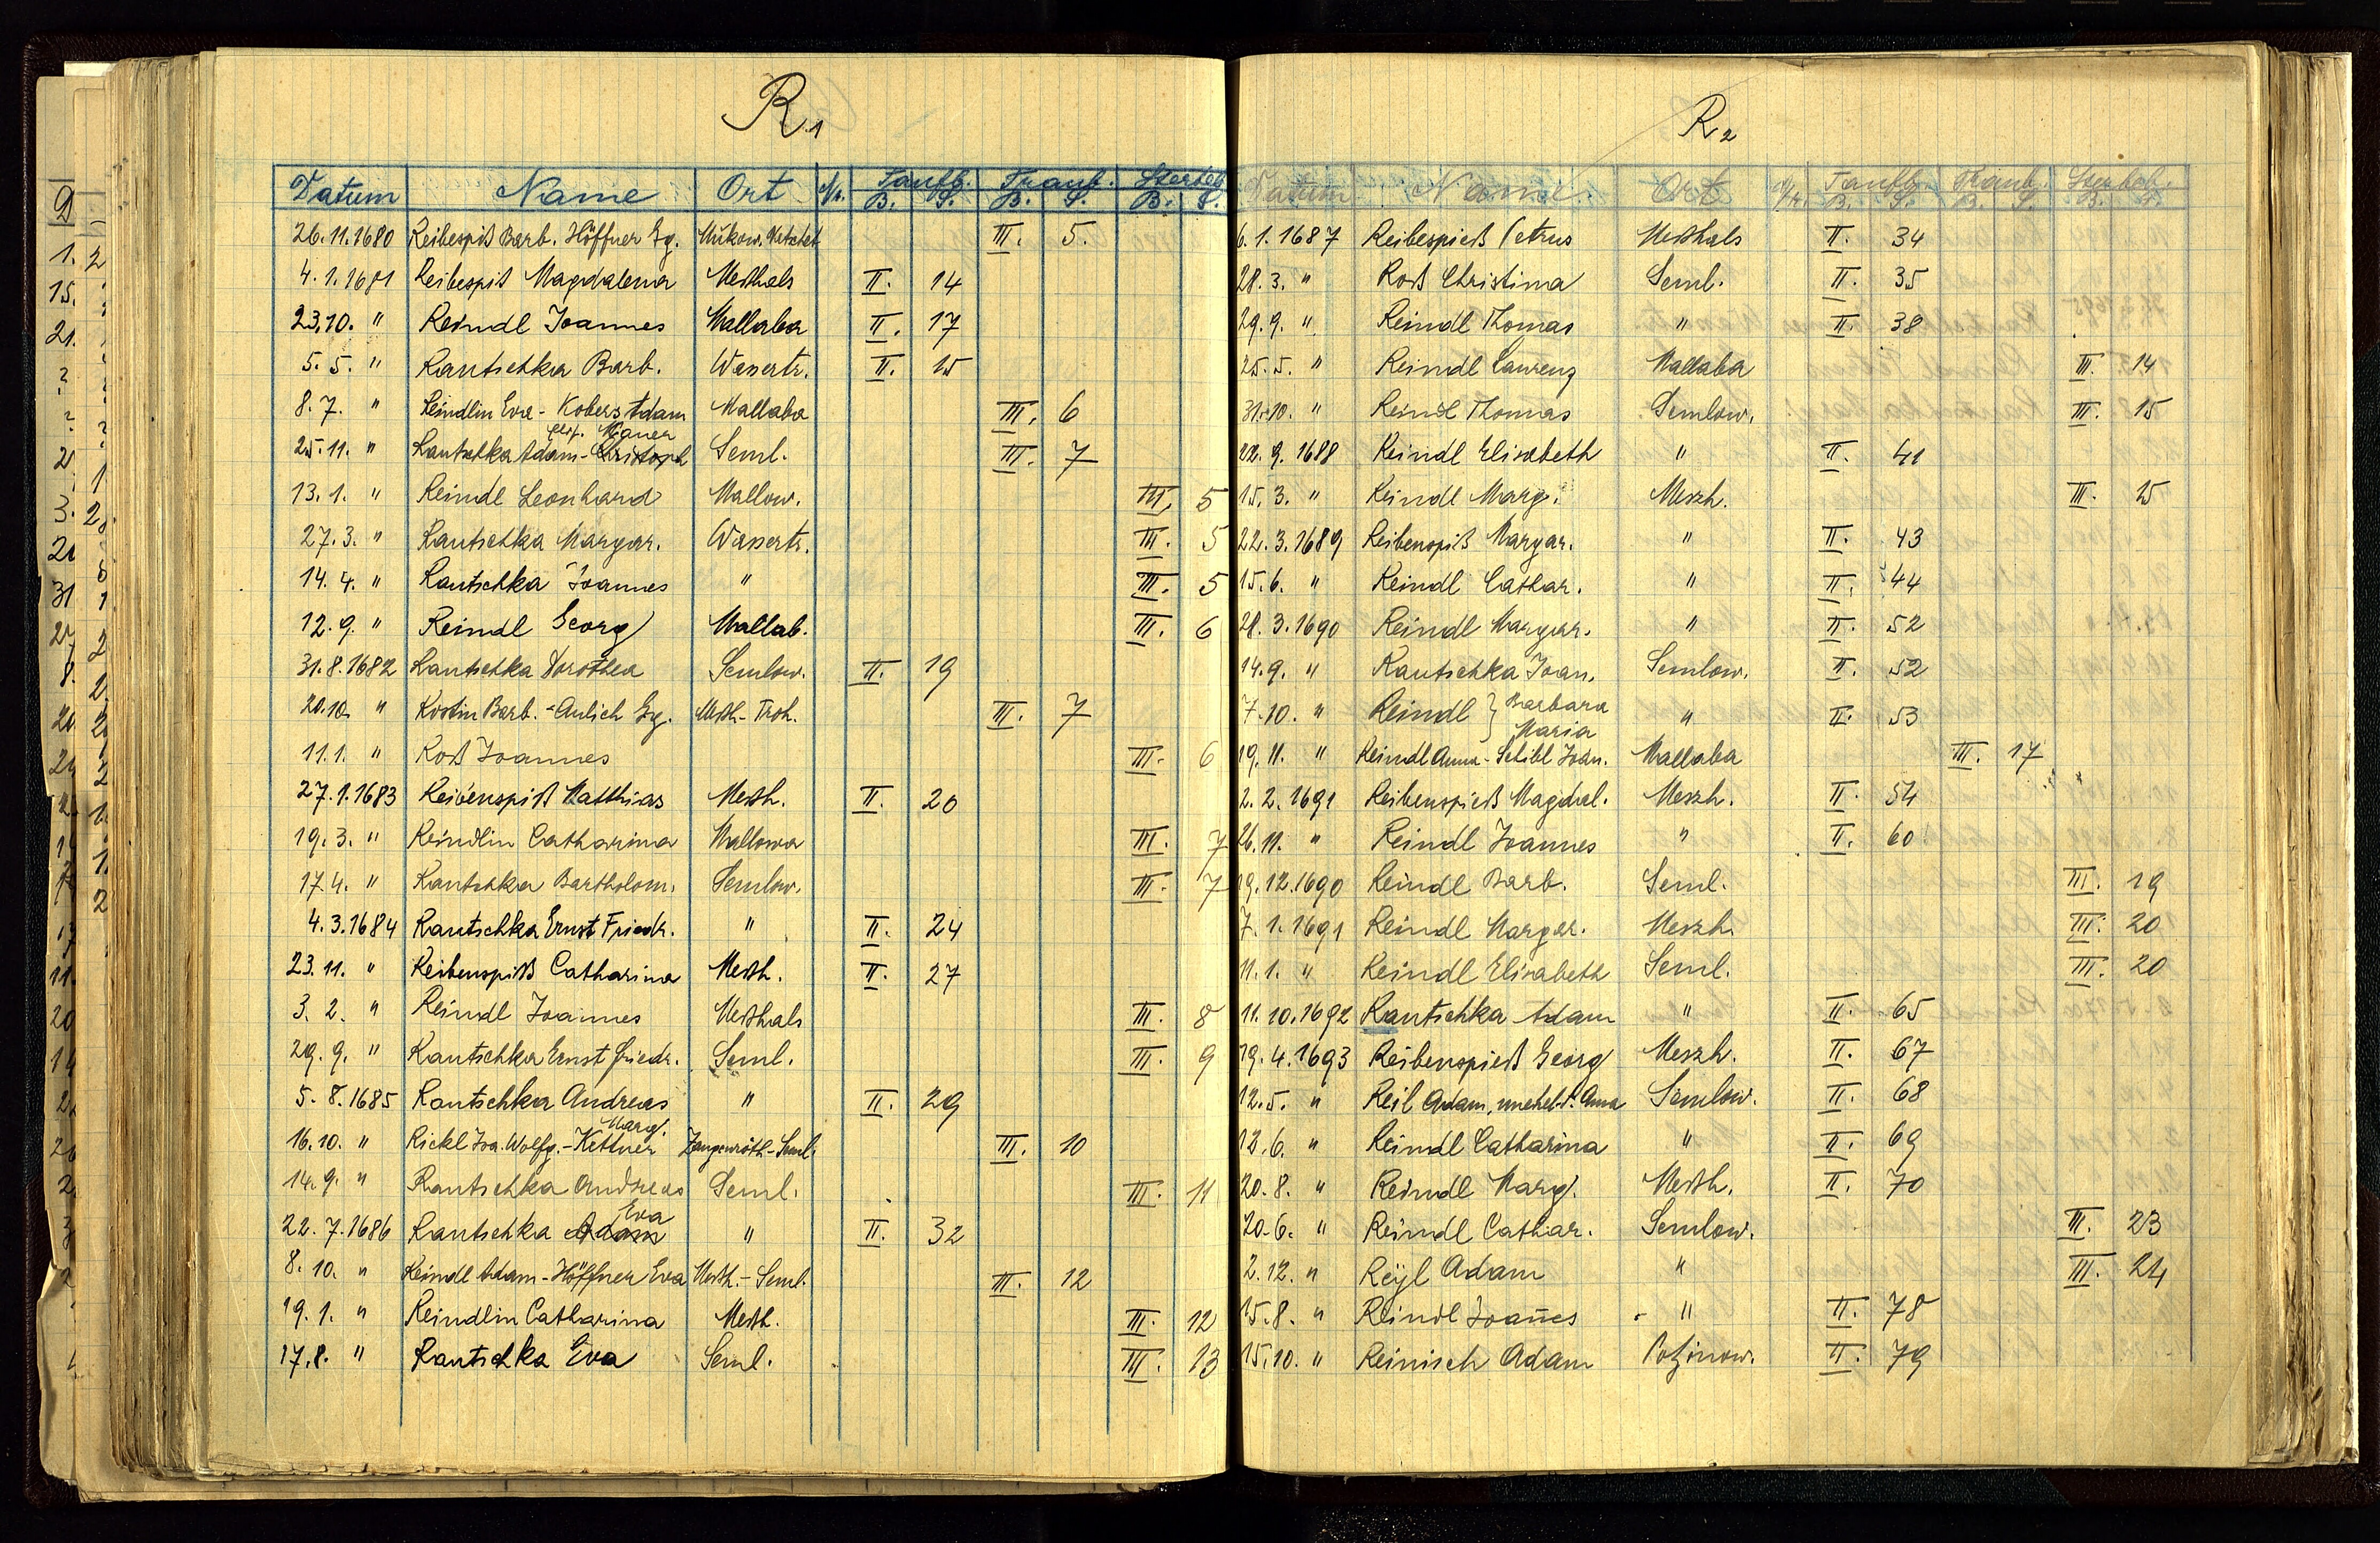 R. 1
Datum Name Ort Nr. Taufb. Traub. Sterbeb.
B. S. B. S. B. S.
26.11.1680 Reibespiß Barb. Höffner Gg. III. 5.
4.1.1681 Reibespiß Magdalena Meßhals II. 14
23.10. " Reindl Joannes Mallaba II. 17
5.5. " Rautschka Barb. Wassertr. II. 15
8.7. " Reindlin Eva - Kobers Adam Mallaba III. 6
Mauer
25.11. " Rautschka Adam - Christoph Seml. III. 7
13.1. " Reindl Leonhard Mallow. III. 5
27.3. " Rautschka Margar. Wassertr. III. 5
14.4. " Rautschka Joannes " III. 5
12.9. " Reindl Georg Mallab. III. 6
31.8.1682 Rautschka Dorothea Semlow. II. 19
20.10. " Rostin Barb. - Aulich Gg. Meßh.- Troh. III. 7
11.1. " Roß Joannes III. 6
27.1.1683 Reibenspiß Matthias Meßh. II. 20
19.3. " Reindlin Catharina Mallowa III. 7
17.4. " Rautschka Bartholom. Semlow. III. 7
4.3.1684 Rautschka Ernst Friedr. " II. 24
23.11. " Reibenspiß Catharina Meßh. II. 27
3.2. " Reindl Joannes Meßhals III. 8
29.9. " Rautschka Ernst Friedr. Seml. III. 9
5.8.1685 Rautschka Andreas " II. 29
Marg.
16.10. " Rickl Joa. Wolfg. - Kettner Zengenröth.- Seml. III. 10
14.9. " Rautschka Andreas Seml. III. 11
Eva
22.7.1686 Rautschka Adam " II. 32
8.10. " Reindl Adam - Höffner Eva Meßh. - Seml. III. 12
19.1. " Reindlin Catharina Meßh. III. 12
17.8. " Rautschka Eva Seml. III. 13
R. 2
Datum Name Ort Nr. Taufb. Traub. Sterbeb.
B. S. B. S. B. S.
6.1.1687 Reibespieß Petrus Meßhals II. 34
28.3. " Roß Christina Seml. II. 35
29.9. " Reindl Thomas " II. 38
25.5. " Reindl Laurenz Mallaba III. 14
31.10. " Reindl Thomas Semlow. III. 15
22.9.1688 Reindl Elisabeth " II. 41
15.3. " Reindl Marg. Meszh. III. 15
22.3.1689 Reibenspiß Margar. " II. 43
15.6. " Reindl Cathar. " II. 44
28.3.1690 Reindl Margar. " II. 52
14.9. " Rautschka Joan. Semlow. II. 52
7.10. " Reindl } Barbara " II. 53
Maria
19.11. " Reindl Anna - Schibl Joan. Mallaba III. 17
2.2.1691 Reibenspieß Magdal. Meszh. II. 54
26.11. " Reindl Joannes " II. 60
19.12.1690 Reindl Barb. Seml. III. 19
7.1.1691 Reindl Margar. Meszh. III. 20
11.1. " Reindl Elisabeth Seml. III. 20
11.10.1692 Rautschka Adam " II. 65
19.4.1693 Reibenspieß Georg Meszh. II. 67
12.5. " Reil Adam, unehel. Anna Semlow. II. 68
12.6. " Reindl Catharina " II. 69
20.8. " Reindl Marg. Meßh. II. 70
20.6. " Reindl Cathar. Semlow. III. 23
2.12. " Reÿl Adam " III. 24
15.8. " Reindl Joan̄es " II. 78
15.10. " Reinisch Adam Potzinow. II. 79